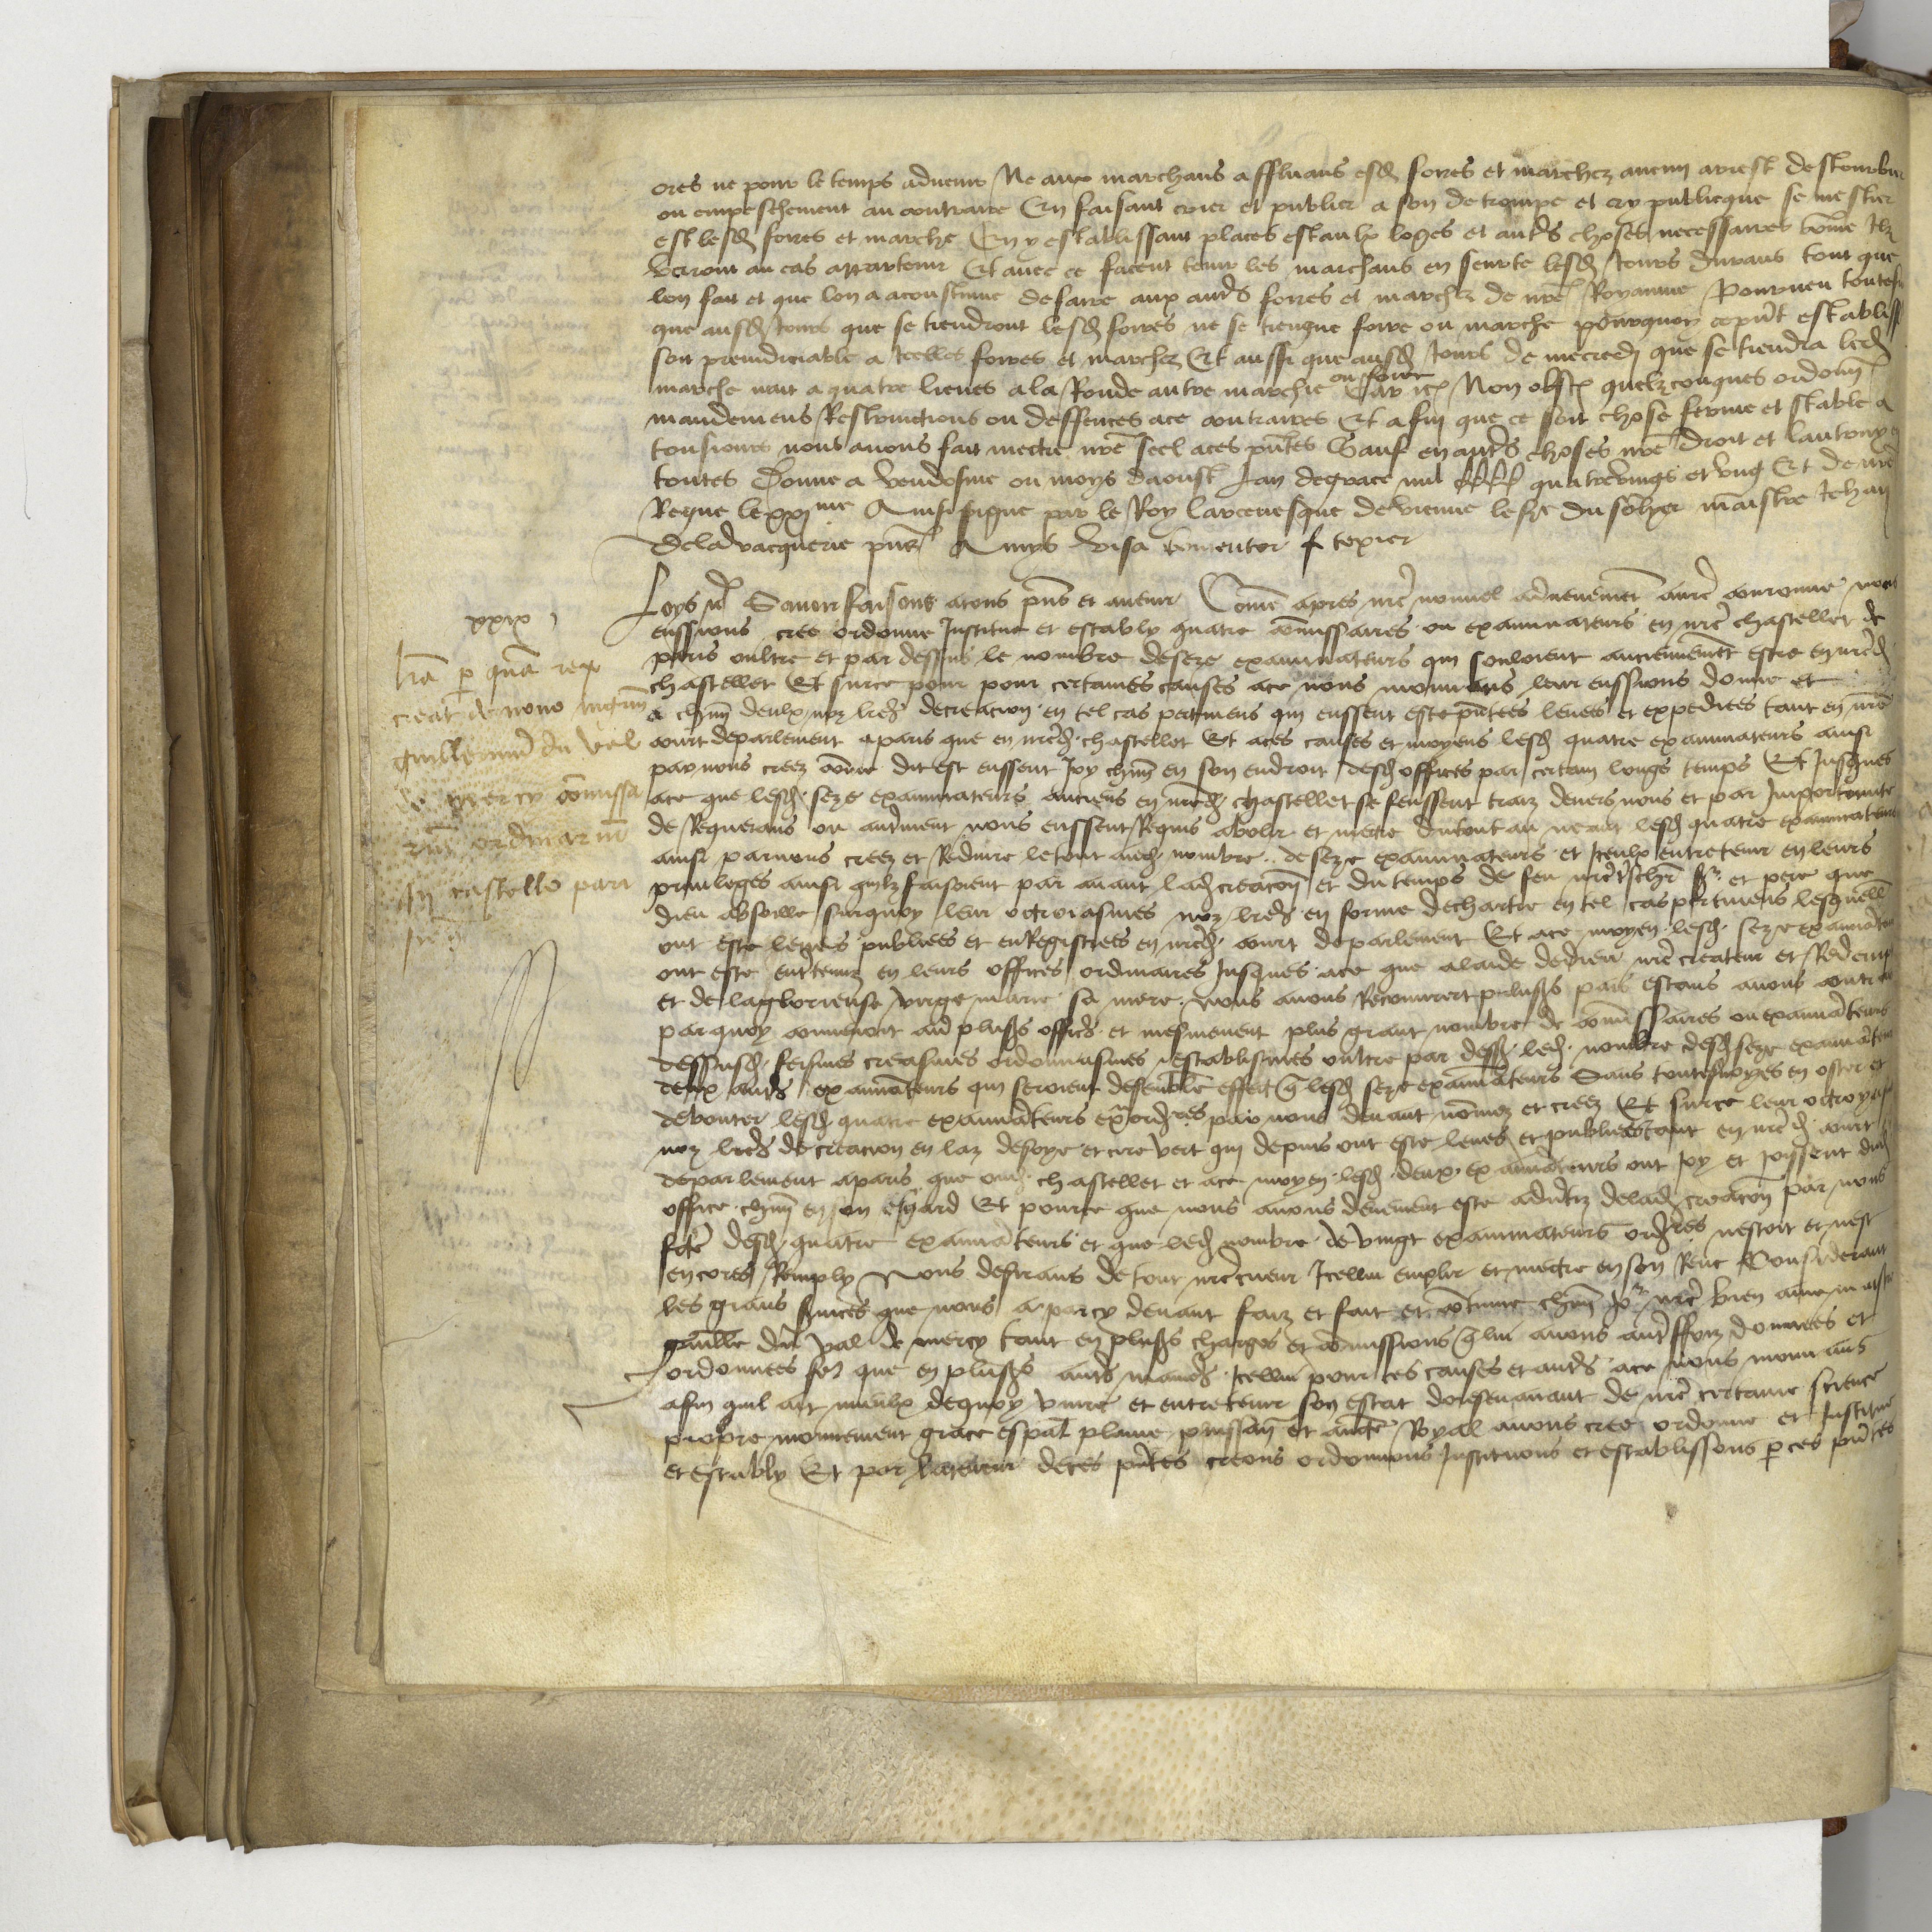 ores ne pour le temps advenir Ne aux marchans affluans esd foires et marchez aucun arrest destourbier
ou empeschement au contraire En faisant crier et publier a son de trompe et cry publicque se mestier
est lesd foires et marche En y establissant places estaulx loges et autrs choses necessaires come Ilz
verront au cas appartenir Et avec ce facent tenir les marchans en seurte lesd Jours durans tout que
lon fait et que lon a acoustume de faire aux autrs foires et marchez de nre Royaume Pourveu toutesf
que ausd Jours que se tiendront lesd foires ne se tiengne foire ou marche pourquoy ce pnt establiss
soit preiudiciable a Icelles foires et marchez Et aussi que ausd Jours de mecredi que se tiendra led
marche nait a quatre lieues a la Ronde autre marchie ou foire Car Non obst quelzconques ordonn
mandemens Restrinctions ou deffences a ce contraires Et afin que ce soit chose ferme et stable a
tousiours nous avons fait mectre nre seel a ces pntes Sauf en autrs choses nre droit et lautruy en
toutes Donne a vendosme ou moys daoust Lan de grace mil quatrevings et ung Et de nre
Regne le xxi me Ainsi signe par le Roy larcevesque de vienne le sire du solier maistre Jehan
de la vacquerie pns Amys Visa contentor f texier
xxix
Loys &c Savoir faisons a tous pns et avenir Come apres nre nouvel advenement a nre couronne nous
eussions cree ordonne Institue et estably quatre comissaires ou examinateurs en nre chastellet de
paris oultre et par dessus le nombre de seze examinateurs qui souloient anciennement estre en nred
chastellet Et sur ce pour pour certaines causes a ce nous mouvans leur eussions donne et
a chun deulx noz lres de creacion en tel cas pertinens qui eussent este pntees leues et expediees tant en nre
court de parlement a paris que en nred chastellet Et a ces causes et moyens lesd quatre examinateurs ainsi
par nous creez come dit est eussent Joy chun en son endroit desd offices par certain longs temps Et Jusques
a ce que lesd seze examinateurs anciens en nred chastellet se feussent traiz devers nous et par Importunite
de Requerans ou autrment nous eussent Requis abolir et mectre du tout au neant lesd quatre examinateurs
ainsi par nous creez et Reduire le tout aud nombre de seze examinateurs et Iceulx entretenir en leurs
privileges ainsi quilz faisoient par avant lad creacon et du temps de feu nre treschr sr et pere que
dieu absoille surquoy leur octroiasmes noz lres en forme de chartre en tel cas pertinens lesquell
ont este leues publiees et enRegistrees en nred court de parlement Et a ce moyen lesd seze examinateurs
ont este entretenuz en leurs offices ordinaires Jusques a ce que a laide de dieu nre createur et Redemp
et de la glorieuse vierge marie sa mere nous avons Recouvert plusrs pais estans avons contre
parquoy convenoit avoir plusrs offices et mesmement plus grant nombre de comissaires ou examinateurs
dessusd feismes creasmes ordonnasmes establismes oultre par dessus led nombre desd seze examinateurs
deux autrs examinateurs qui seroient de semble effect que lesd seze examinateurs Sans toutesvoyes en oster et
debouter lesd quatre examinateurs exordres par nous devant nomez et creez Et sur ce leur octroyasmes
noz lres de creacion en laz de soye et cire vert qui depuis ont este leues et publiees tant en nred court
de parlement a paris que oud chastellet et a ce moyen lesd deux examinateurs ont Joy et Joissent dud
office chun en son esgard Et pource que nous avons deuement este advertiz de lad creacon par nous
fcte desd quatre examinateurs et que led nombre de vingt examinateurs ordres nestoit et nest
encores Remply Nous desirans de tout nre cueur Icellui emplir et mectre en son Renc Considerant
les grans services que nous a par cy devant faiz et fait et continue chun Jor nre bien ame maistre
guille du val de mercy tant en plusrs charges et comissions que lui avons autreffoiz donnees et
ordonnees fere que en plusrs autrs manes Icellui pour ces causes et autrs a ce nous mouvans
afin quil ait mieulx de quoy vivre et entretenir son estat doresenavant de nre certaine science
propre mouvement grace espal plaine puissan et aucte Royal avons cree ordonne et Institue
et estably Et par la teneur de ces pntes creons ordonnons Instituons et establissons p ces pntes
lra p quam rex
creat de novo mgrm
guillermu du val
de mercy comissa
riu ordinariu
In castello pari
sien